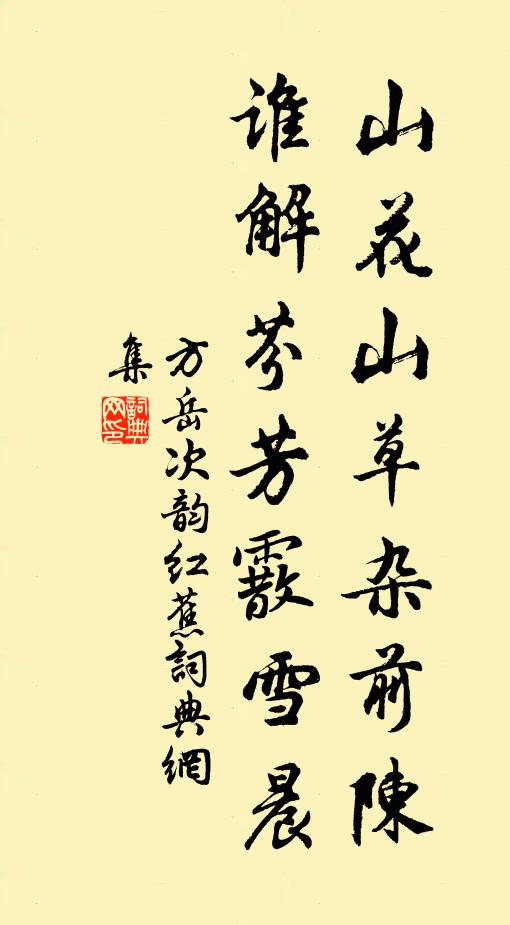 山花山草杂前陳
谁解芬芳霰雪晨
方岳次韵红蕉詞典網
集
詞典网印